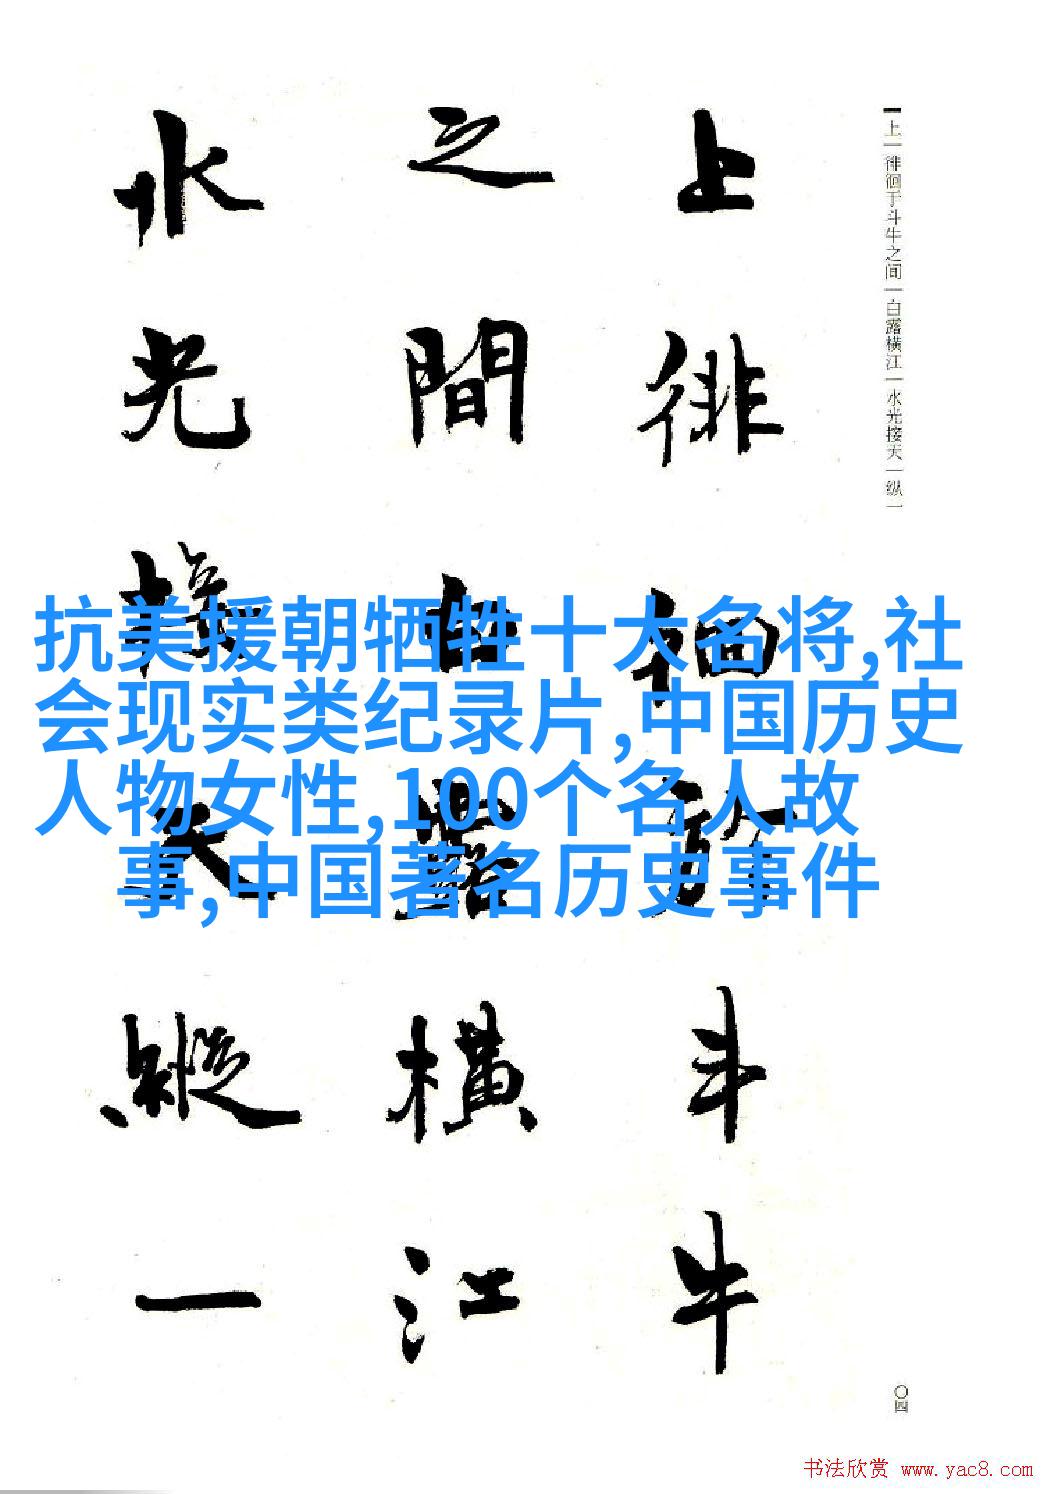 上徘徊於斗牛
之間白露橫江
水光接天縱一
上｜徘徊于斗牛之间｜白露横江｜水光接天｜纵一
抗美援朝牺牲十大名将,社
会现实类纪录片,中国历史
人物女性,100个名人故
事,中国著名历史事件
〇四
书法欣赏 www.yac8.com